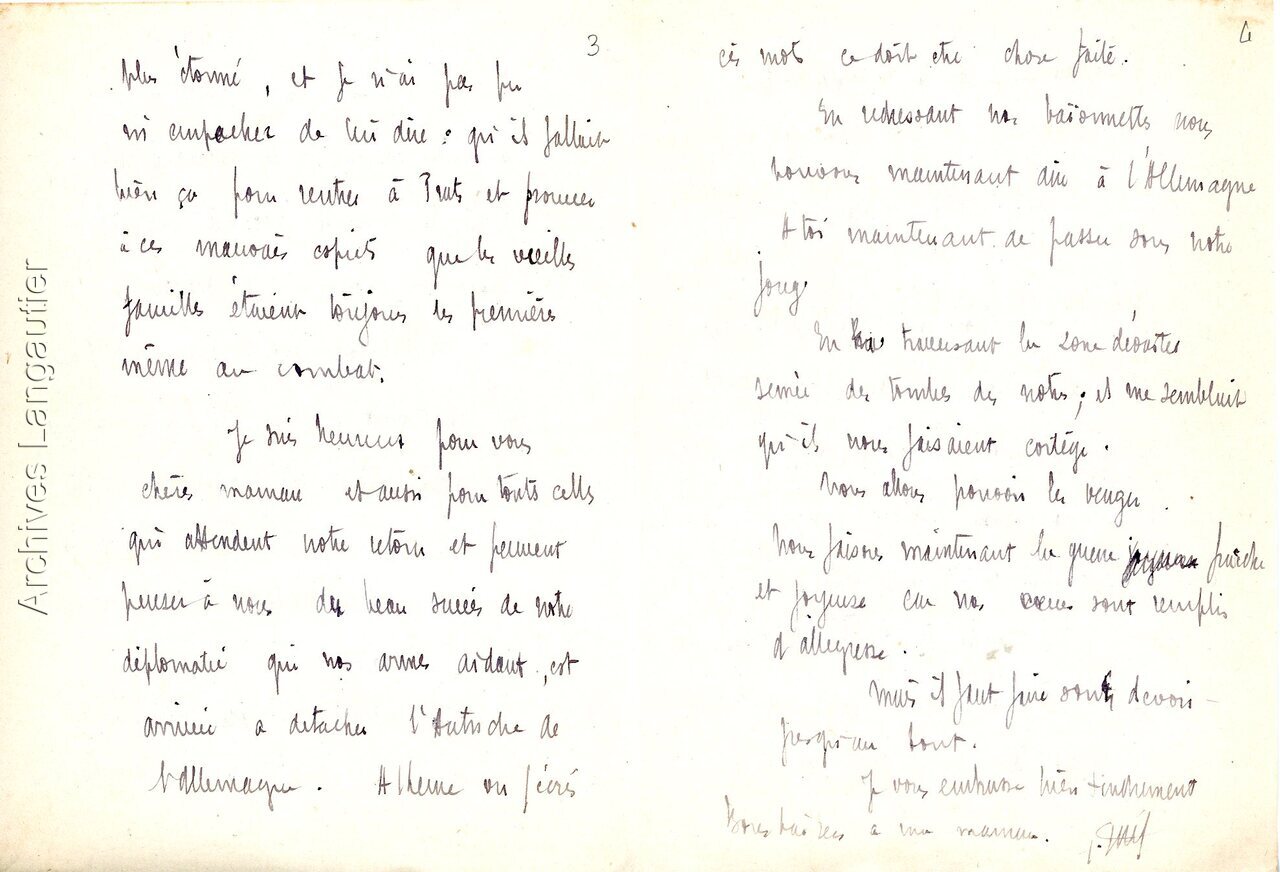 3
plus étonné, et je n'ai pas pu
m'empecher de lui dire : qu'il fallait
bien ça pour rentrer à Prats et prouver
à ces mauvais copiets que les vieilles
familles étaient toujours les premières
même au combat.
Je suis heureux pour vous
chères maman et aussi pour touts celles
qui attendent notre retour et peuvent
penser à nous du beau succés de notre
diplomatie qui nos armes aidant, est
arrivée a detacher l'Autriche de
l'Allemagne. A l'heure ou j'écris
4
ces mots ce doit etre chose faite.
En redressant nos baïonnettes nous
pouvons maintenant dire à l'Allemagne
A toi maintenant de passer sous notre
joug
En traversant la zone dévastée
semée des tombes des notres ; il me semblait
qu'ils nous faisaient cortége.
Nous allons pouvoir les venger.
Nous faisons maintenant la guerre fraiche
et joyeuse car nos cœurs sont remplis
d'allegresse.
Mais il faut faire sont devoir
jusqu'au bout.
Je vous embrasse bien tendrement
Bons baisers a ma maman.
Archives Langautier